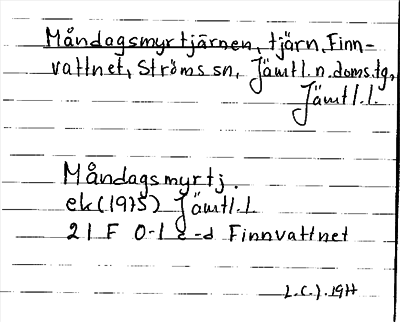 Måndagsmyrtjärnen, tjärn, Finn-
vattnet, Ströms sn, Jämtl. n. doms.tg,
Jämtl. l.
Måndagsmyrtj.
ek (1975) Jämtl. l
21 F 0-1 c-d Finnvattnet
L.C.J. 1977